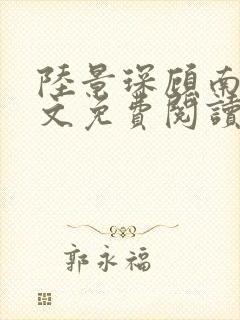 陸景琛顧南
文免費閱讀
郭永福